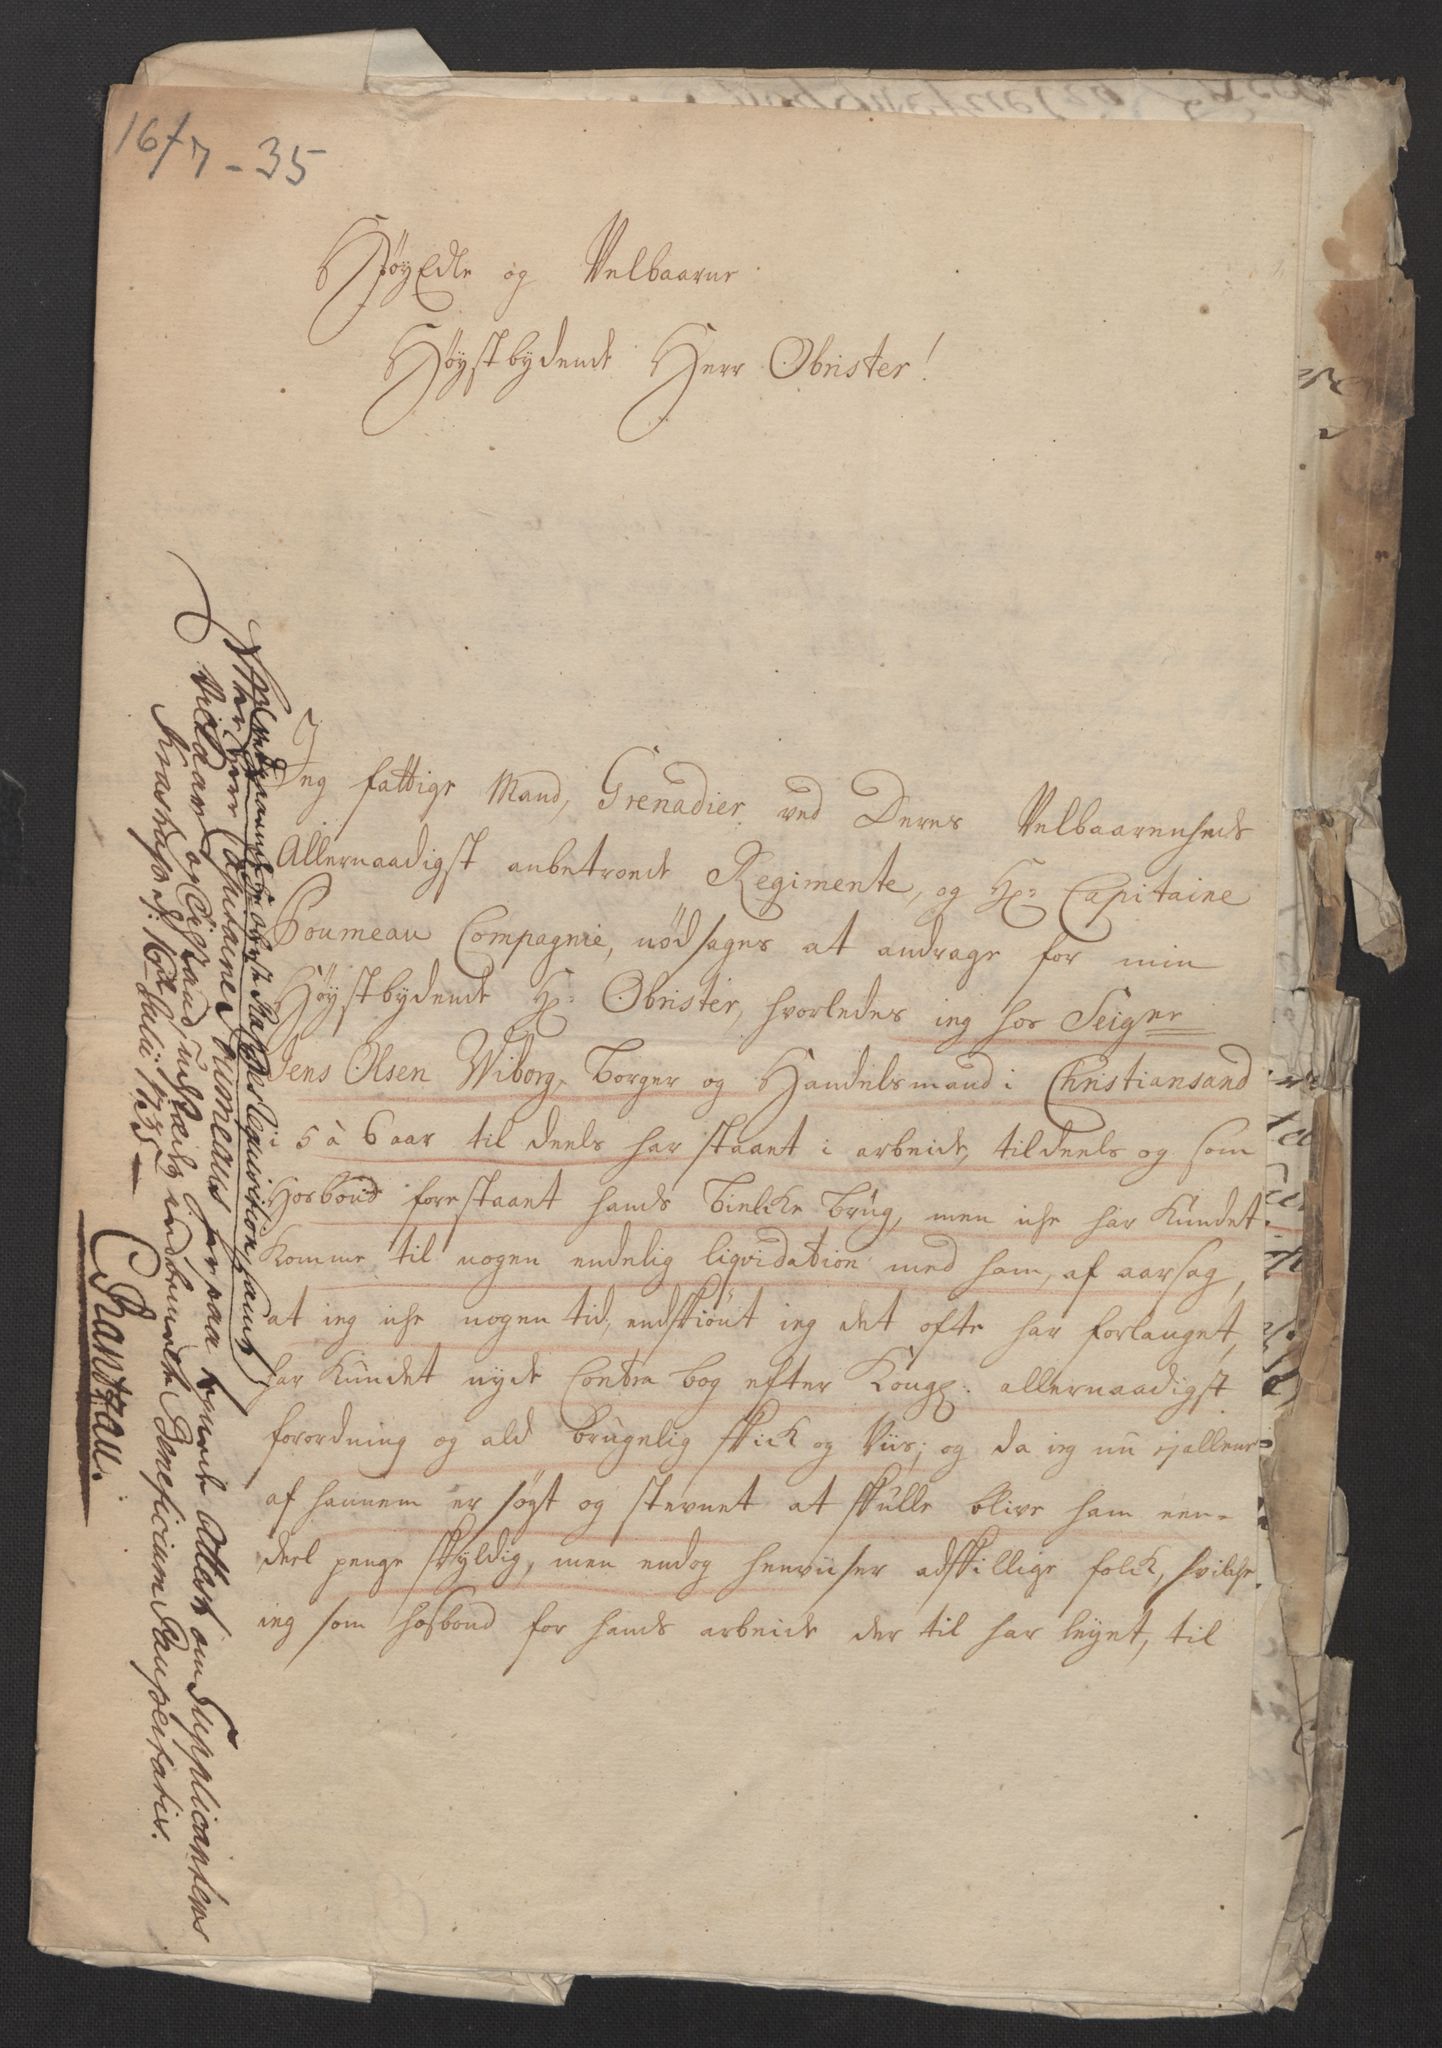 16/7 - 35
HøyEdle og Velbaarne
Høystbydende Herr Obrister!
Jeg fattige Mand, Grenadier ved Deres Velbaarenheds
Allernaadigst anbetroede Regimente, og Hr: Capitaine
Compagnie, nødsages at andrage for min
Høystbydende Hr: Obrister, hvorledes ieg hos Seigr
Jens Olsen Wiborg, Borger og Handelsmand i Christiansand
i 5 à 6 aar til deels har staaet i arbeide, tildeels og som
Hosbond forestaaet hands Brug, men iche har Kundet
Komme til nogen endelig liqvidation med ham, af aarsag,
at ieg iche nogen tid, endskiönt ieg det ofte har forlanget,
har Kundet nyde Contra bog efter Kongl. allernaadigst
forordning og ald brugelig skick og Viis; og da ieg nu ej allene
af hannem er søgt og stevnet at skulle blive ham een-
deel penge skyldig, men endog henviiser adskillige folck, hvilche
ieg som hosbond for hands arbeide der til har leyet, til
Herr Capitaine Attest om Supplicantens
Vilkaar og Tilstand ved bemelte Beneficium Paupertatis.
16de Julii 1735
CRantzau.